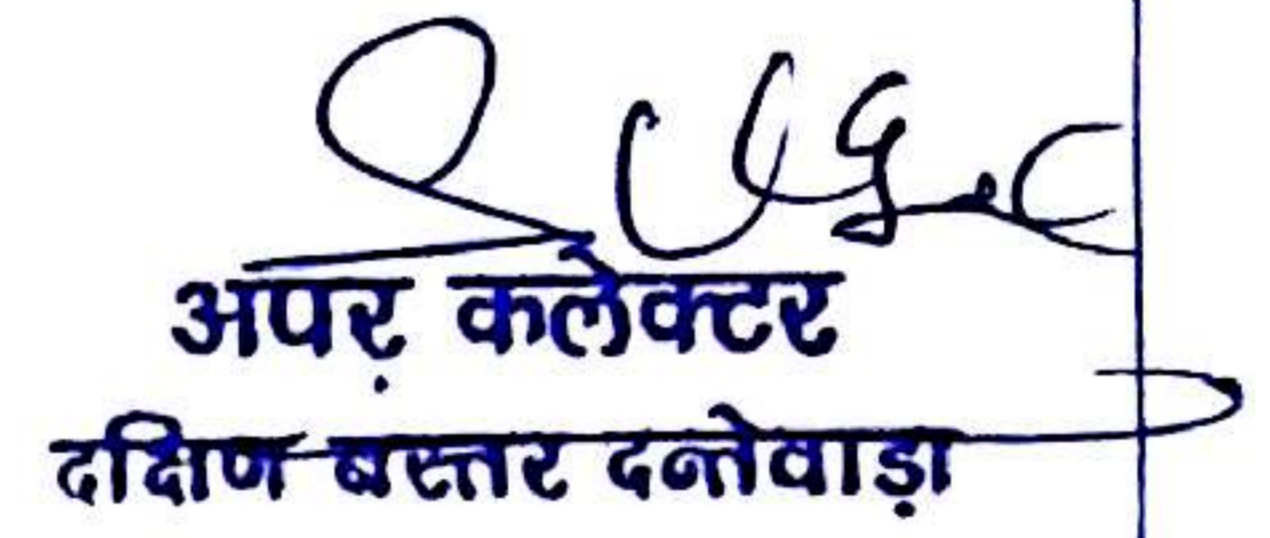 अपर कलेक्टर
दक्षिण बस्तर दन्तेवाड़ा